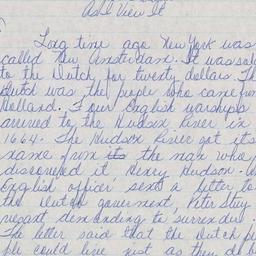 As I View It
Long time ago New York was
called New Amsterdam. It was sold
to the Dutch for twenty dollars. The
Dutch was the people who came from
Holland. Four English warships
arrived to the Hudson River in
1664. The Hudson River got its
name from its the man who
discovered it Henry Hudson.
English officer sent a letter to
the Dutch goverment, Peter Stuy
demanding to surrender.
The letter said that the Dutch peo
ple could live just as they do b